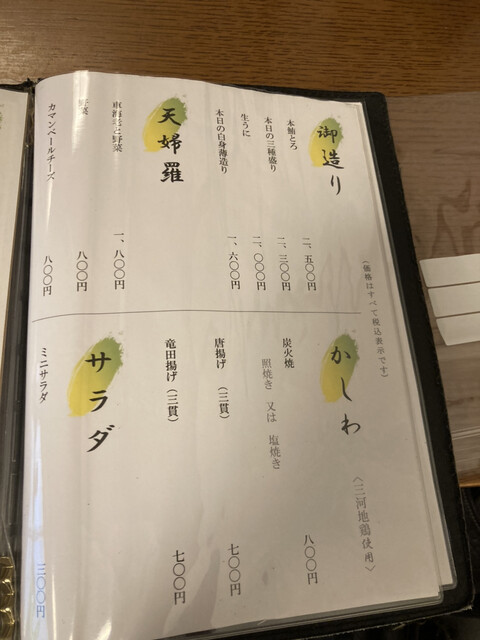 (価格はすべて税込表示です)
御造り
本鮪とろ 二、五〇〇円
本日の三種盛り 二、三〇〇円
生うに 二、〇〇〇円
本日の白身薄造り 一、六〇〇円
天婦羅
車海老と野菜 一、八〇〇円
野菜 八〇〇円
カマンベールチーズ 八〇〇円
かしわ
〈三河地鶏使用〉
炭火焼 八〇〇円
照焼き 又は 塩焼き
唐揚げ (三貫) 七〇〇円
竜田揚げ (三貫) 七〇〇円
サラダ
ミニサラダ 三〇〇円